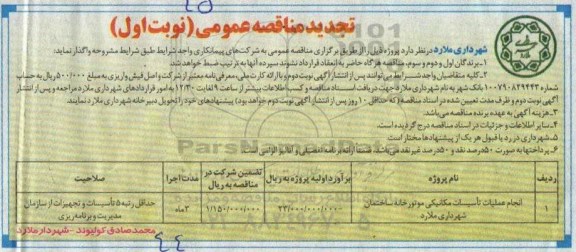 تجدید مناقصه عمومی (نوبت اول)
شهرداری ملارد در نظر دارد پروژه ذیل را از طریق برگزاری مناقصه عمومی به شرکت‌های پیمانکاری واجد شرایط طبق شرایط مشروحه واگذار نماید:
۱-برندگان اول و دوم و سوم، مناقصه هرگاه حاضر به انعقاد قرارداد نشوند سپرده آنها به ترتیب ضبط خواهد شد.
۲-کلیه متقاضیان واجد شرایط می‌توانند پس از انتشار آگهی نوبت دوم با ارائه کارت ملی، معرفی‌نامه معتبر از شرکت و اصل فیش واریزی به مبلغ ۵۰۰/۰۰۰ ریال به حساب
شماره ۱۰۰۷۹۰۸۲۹۴۴۲ بانک شهر به نام شهرداری ملارد جهت دریافت اسناد مناقصه و کسب اطلاعات بیشتر از ساعت ۹ لغایت ۱۲/۳۰ به امور قراردادهای شهرداری ملارد مراجعه و پس از انتشار
آگهی نوبت دوم و ظرف مدت تعیین شده در اسناد مناقصه (که حداقل ۱۰ روز پس از انتشار آگهی نوبت دوم خواهد بود) پیشنهادهای خود را تحویل دبیرخانه شهرداری ملارد نمایند.
۳-هزینه آگهی به عهده برنده مناقصه می‌باشد.
۴-سایر اطلاعات و جزئیات در اسناد مناقصه درج گردیده است.
۵-شهرداری در رد یا قبول هر یک از پیشنهادها مختار است.
۶-پرداختها به صورت ۵۰درصد نقد و ۵۰درصد غیرنقد می‌باشد. ضمناً ارائه برنامه تفصیلی و آنالیز الزامی
ردیف نام پروژه برآورد اولیه پروژه به ریال تضمین شرکت در مناقصه به ریال مدت اجرا صلاحیت
۱ انجام عملیات تأسیسات مکانیکی موتورخانه ساختمان شهرداری ملارد ۲۳/۰۰۰/۰۰۰/۰۰۰ ۱/۱۵۰/۰۰۰/۰۰۰ ۳ماه حداقل رتبه ۵ تأسیسات و تجهیزات از سازمان مدیریت و برنامه‌ریزی
محمدصادق کولیوند - شهردار ملارد